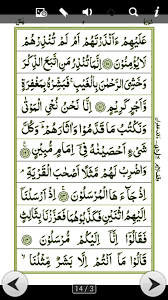 عَلَيْهِمْ ءَاَنْذَرْتَهُمْ اَمْ لَمْ تُنْذِرْهُمْ
لَا يُؤْمِنُوْنَ ۝ اِنَّمَا تُنْذِرُ مَنِ اتَّبَعَ الذِّكْرَ
وَخَشِيَ الرَّحْمٰنَ بِالْغَيْبِ ۚ فَبَشِّرْهُ بِمَغْفِرَةٍ
وَّاَجْرٍ كَرِيْمٍ ۝ اِنَّا نَحْنُ نُحْيِ الْمَوْتٰى
وَنَكْتُبُ مَا قَدَّمُوْا وَاٰثَارَهُمْ ؕ وَكُلَّ
شَيْءٍ اَحْصَيْنٰهُ فِيْٓ اِمَامٍ مُّبِيْنٍ ۝
وَاضْرِبْ لَهُمْ مَّثَلًا اَصْحٰبَ الْقَرْيَةِ ۘ
اِذْ جَآءَهَا الْمُرْسَلُوْنَ ۝ اِذْ اَرْسَلْنَآ
اِلَيْهِمُ اثْنَيْنِ فَكَذَّبُوْهُمَا فَعَزَّزْنَا بِثَالِثٍ
فَقَالُوْٓا اِنَّآ اِلَيْكُمْ مُّرْسَلُوْنَ ۝
قَالُوْا مَآ اَنْتُمْ اِلَّا بَشَرٌ مِّثْلُنَا ۙ
14 / 3